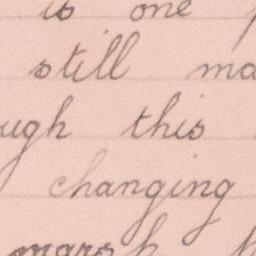 is one
still ma
ugh this
changing
marsh